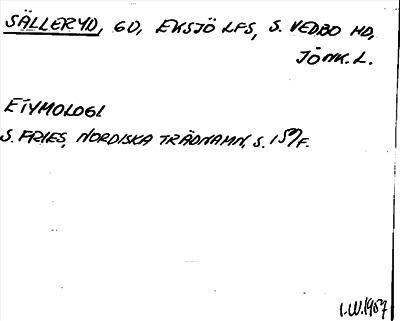 SÄLLERYD, GD, EKSJÖ LFS, S. VEDBO HD,
JÖNK. L.
ETYMOLOGI
S. FRIES, NORDISKA TRÄDNAMN, S. 157F.
I.W.1987